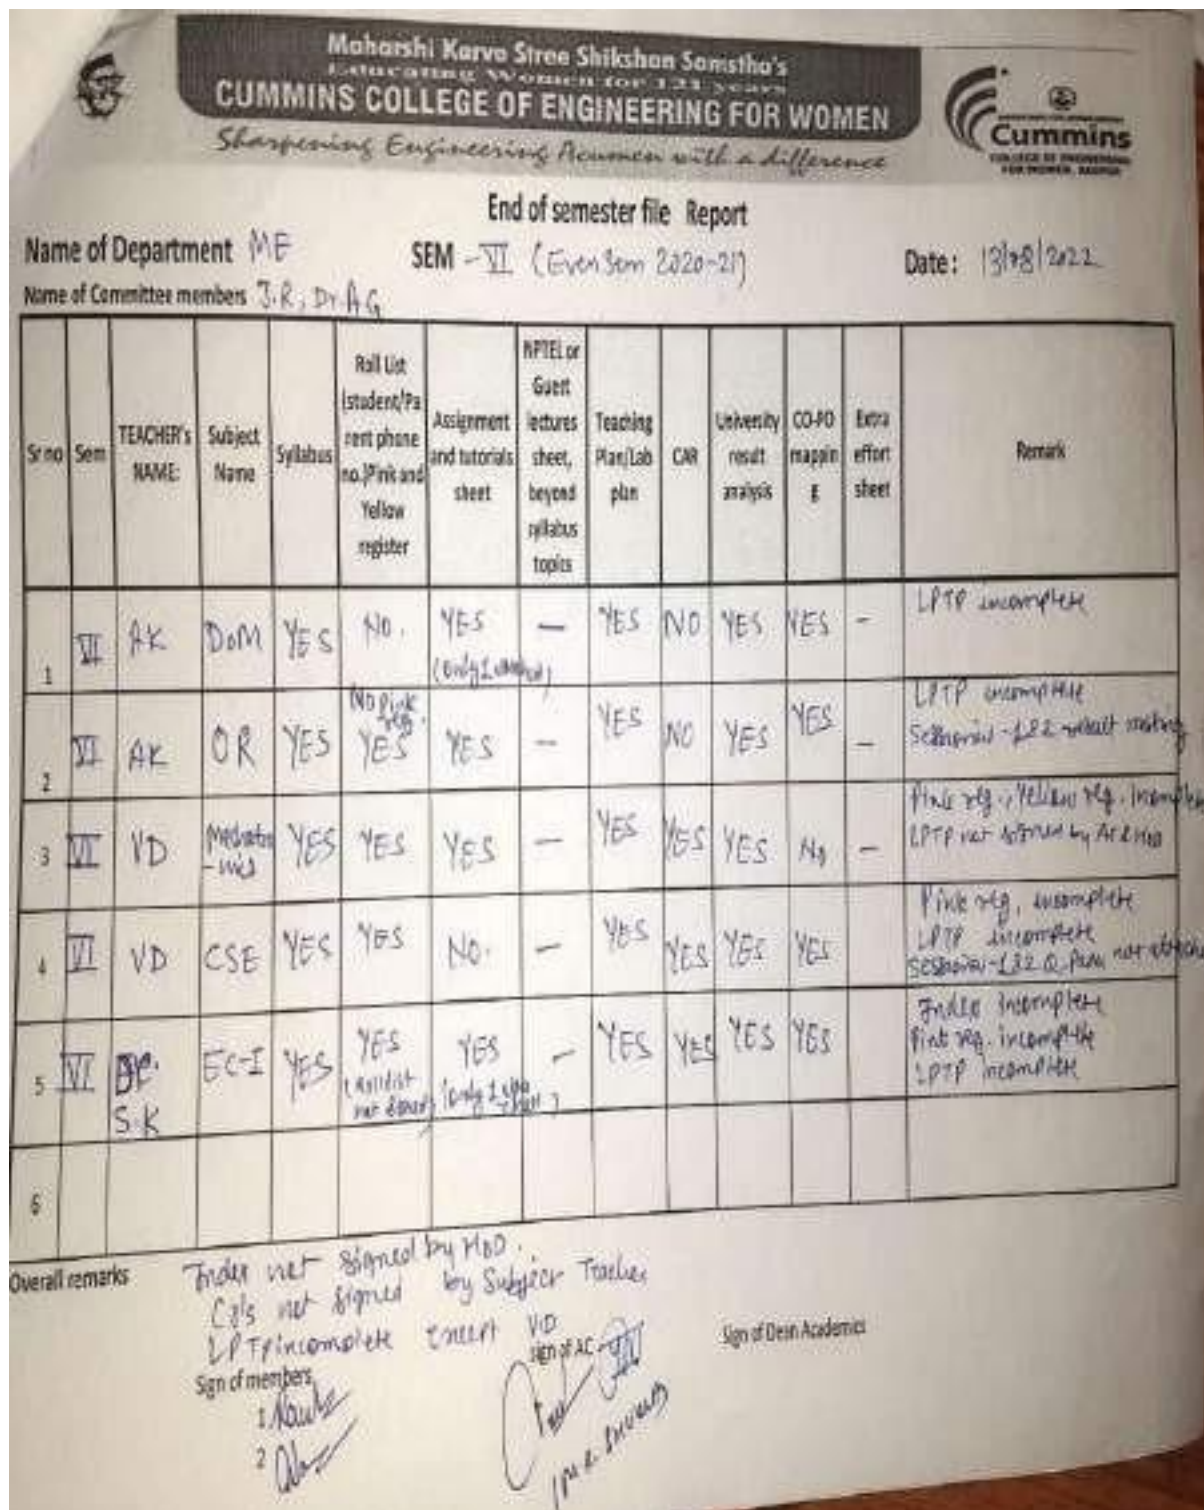 Maharshi Karve Stree Shikshan Samstha's
Educating Women for 121 years
CUMMINS COLLEGE OF ENGINEERING FOR WOMEN
Sharpening Engineering Acumen with a difference
Cummins
COLLEGE OF ENGINEERING
FOR WOMEN, NAGPUR
End of semester file Report
Name of Department ME SEM - VI (Even Sem 2020-21) Date: 13/08/2022
Name of Committee members J.R, Dr. AG
Sr no Sem TEACHER's NAME: Subject Name Syllabus Roll List (student/Parent phone no.)Pink and Yellow register Assignment and tutorials sheet NPTEL or Guest lectures sheet, beyond syllabus topics Teaching Plan/Lab plan CAR University result analysis CO-PO mapping Extra effort sheet Remark
1 VI AK DoM YES NO. YES (only 1) — YES NO YES YES - LPTP incomplete
2 VI AK OR YES No pink reg. YES YES — YES NO YES YES - LPTP incomplete
Sessional-1&2 result
3 VI VD YES YES YES — YES YES YES No - Pink reg., Yellow reg. incomplete
LPTP not signed by AC & HOD
4 VI VD CSE YES YES NO. — YES YES YES YES Pink reg. incomplete
LPTP incomplete
Sessional-1&2 Q. not
5 VI S.K EC-I YES YES (Roll list not) YES (only 1) - YES YES YES YES Index incomplete
Pink reg. incomplete
LPTP incomplete
6
Overall remarks Index not signed by HOD.
not signed by Subject Teacher
LPTP incomplete except VD
Sign of members sign of AC Sign of Dean Academics
1
2